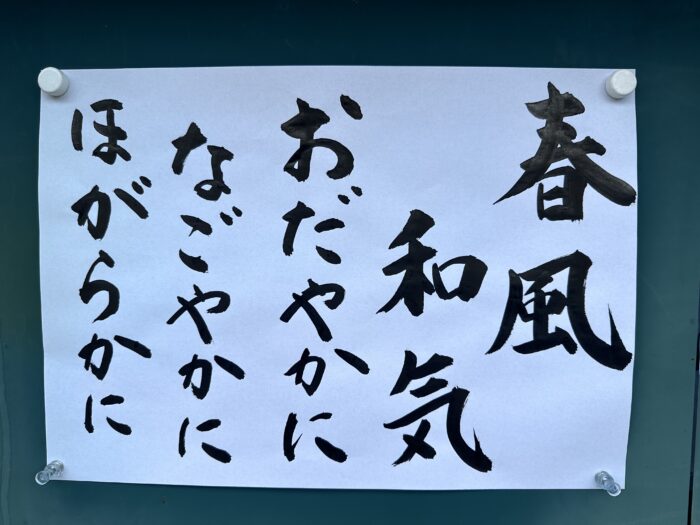 春風
和気
おだやかに
なごやかに
ほがらかに